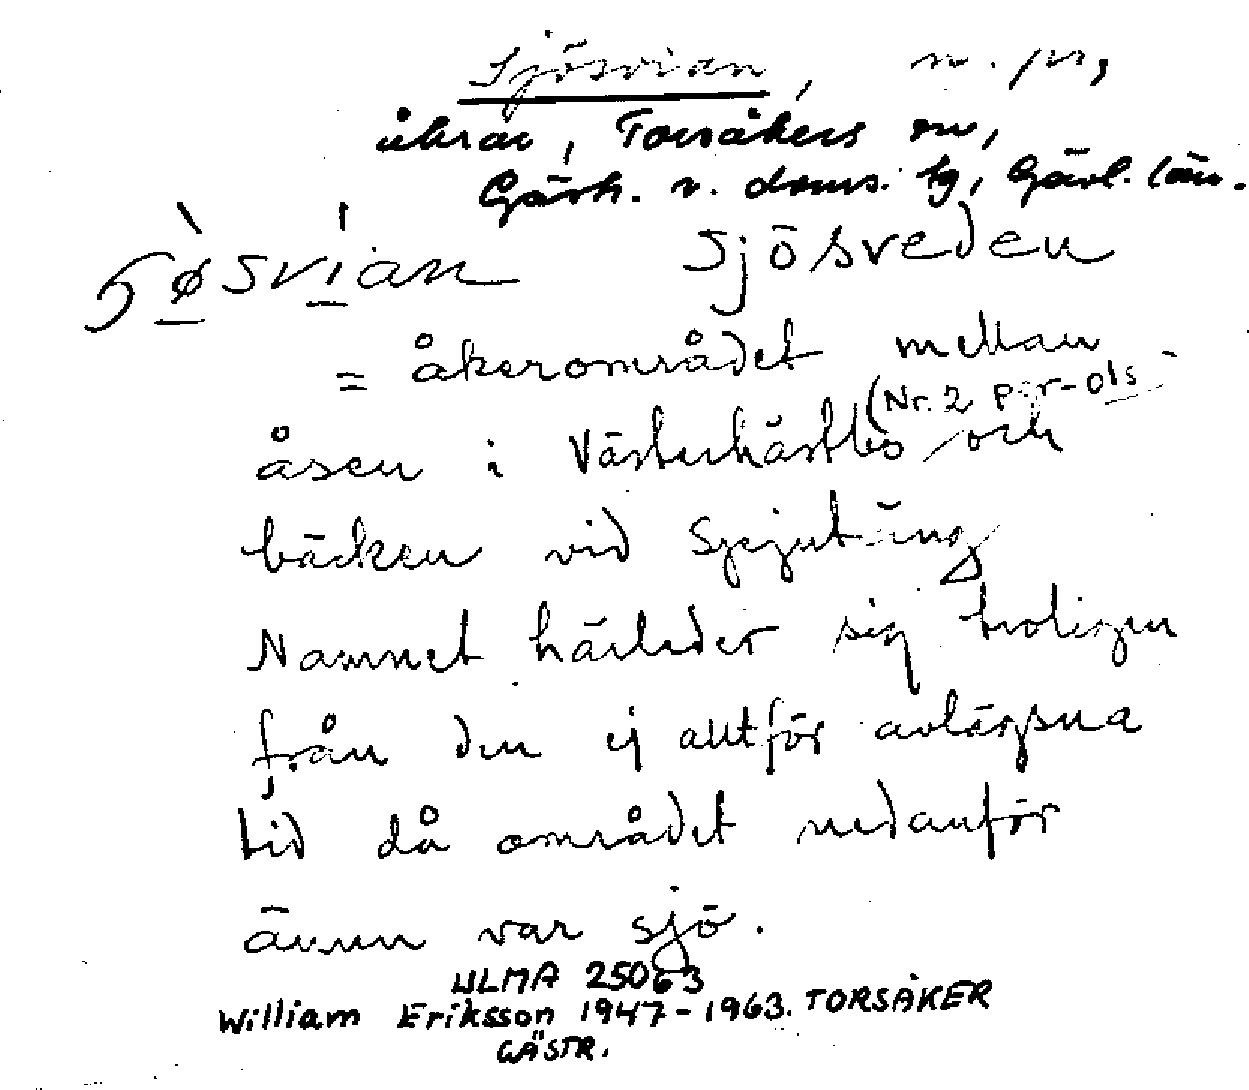 Sjösvian, n. pr,
åkrar, Torsåkers sn,
Gästr. v. doms. tg, Gävl. län.
Sjösveden
= åkerområdet mellan
(Nr. 2 Per-Ols
åsen i Västerhästbo och
bäcken vid
Namnet härleder sig troligen
från den ej alltför avlägsna
tid då området nedanför
även var sjö.
ULMA 25063
William Eriksson 1947-1963. TORSÅKER
GÄSTR.